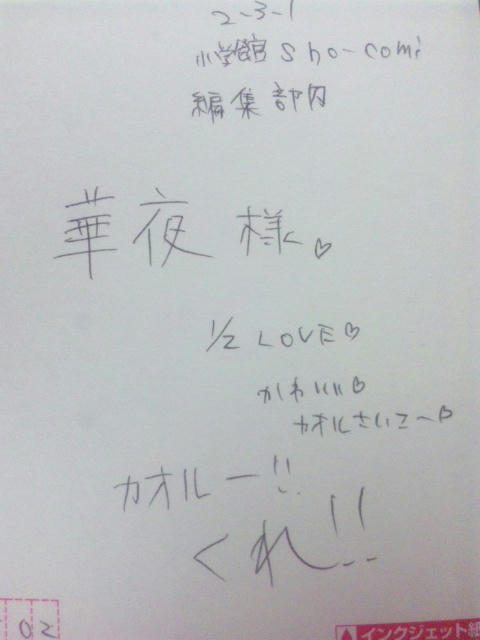 2-3-1
小学館 Sho-comi
編集部内
華夜 様♡
1/2 LOVE♡
かわいい♡
カオルさいこ〜♡
カオルー!!
くれ!!
02
インクジェット紙